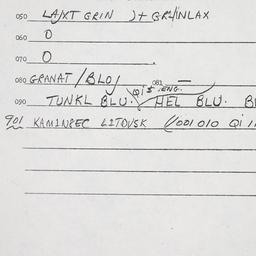 050 LAJXT GRIN )+ GRUINLAX
060 0
070 0
080 GRANAT/BLOJ 081 —
QI'S ENG.
090 TUNKL BLU. HEL BLU.
901 KAMINREC LITOVSK 001 010 QI